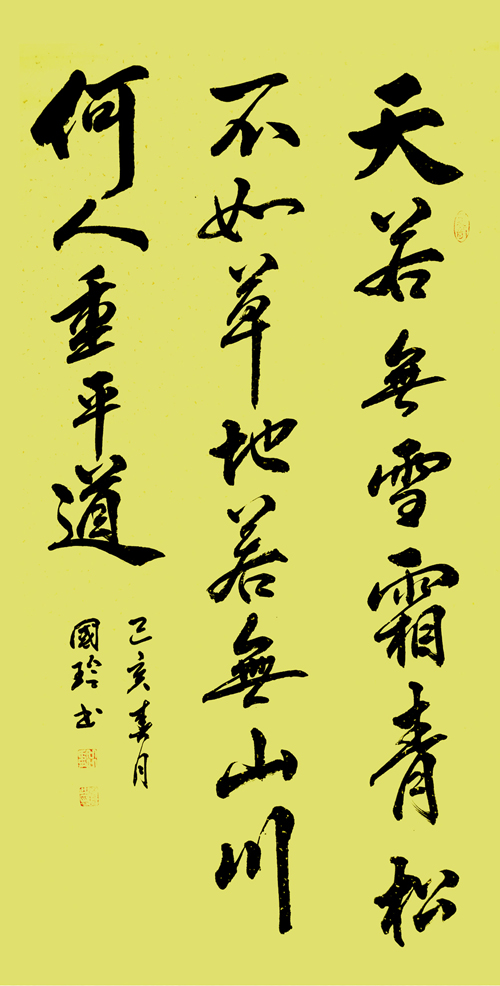 天若無雪霜青松
不如草地若無山川
何人重平道
己亥春月
國玲书